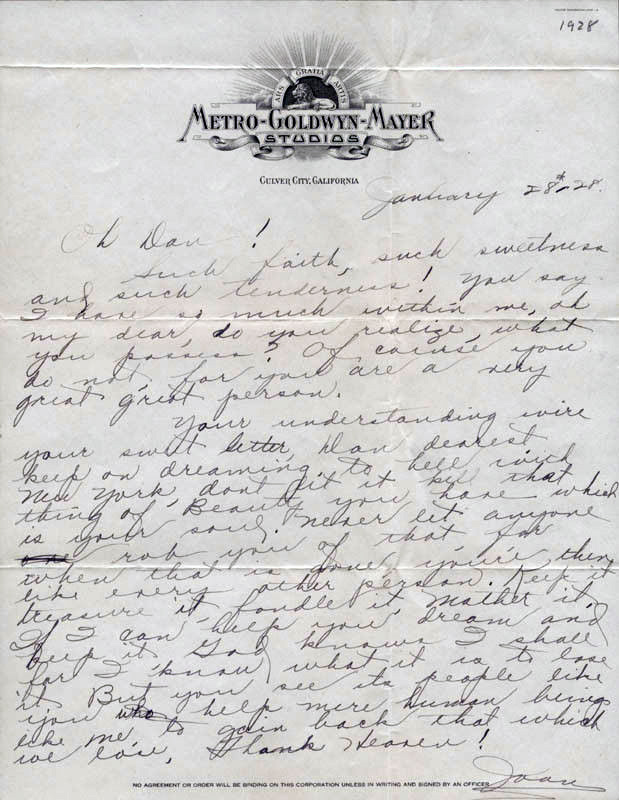 1928
ARS GRATIA ARTIS
METRO-GOLDWYN-MAYER
STUDIOS
CULVER CITY, CALIFORNIA
January 28th-28.
Oh Dan!
Such faith, such sweetness
and such tenderness! You say
I have so much within me, oh
my dear, do you realize, what
you possess? Of course, you
do not, for you are a very
great great person.
Your understanding wire
your sweet letter, Dan dearest
keep on dreaming, to hell with
New York, dont let it kill that
thing of "Beauty" you have which
is your soul. Never let anyone
rob you of that for
when that is gone, you're then
like every other person. Keep it
treasure it, fondle it, mother it,
If I can help you, dream and
keep it God knows I shall
for I know what it is to lose
it. But you see its people like
you who help mere human beings
like me, to gain back that which
we lose, Thank Heaven!
Joan
NO AGREEMENT OR ORDER WILL BE BINDING ON THIS CORPORATION UNLESS IN WRITING AND SIGNED BY AN OFFICER